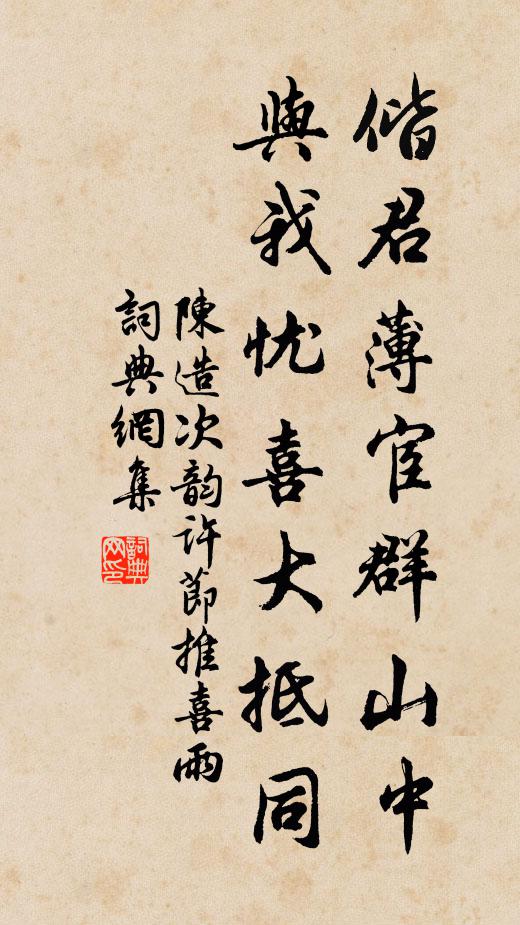 偕君薄宦群山中
與我忧喜大抵同
陳造次韵許節推喜雨
詞典網集
詞典網印